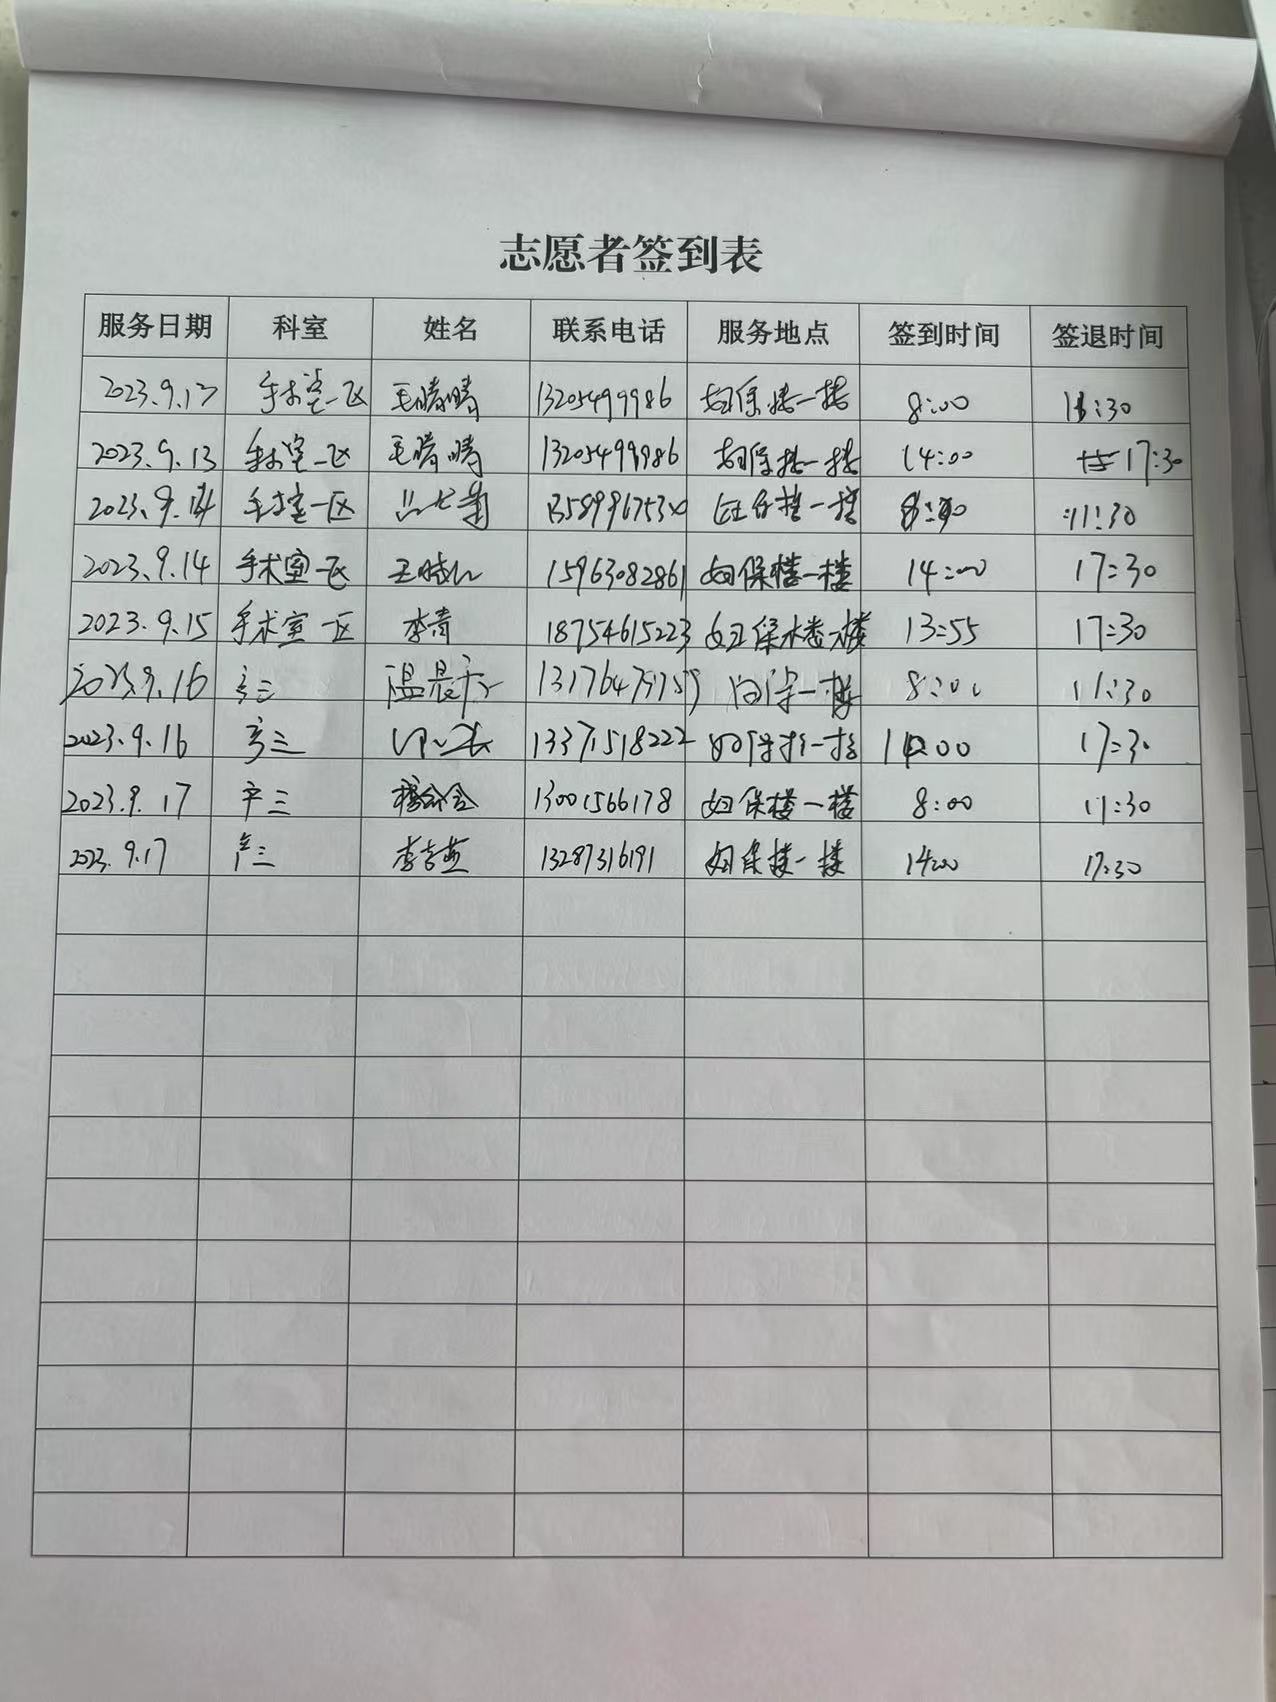 志愿者签到表
服务日期 科室 姓名 联系电话 服务地点 签到时间 签退时间
2023.9.13 手术室一区 毛晴晴 13205499986 妇保楼一楼 8:00 11:30
2023.9.13 手术室一区 毛晴晴 13205499986 妇保楼一楼 14:00 17:30
2023.9.14 手术室一区 妇保楼一楼 11:30
2023.9.14 手术室一区 15963082861 妇保楼一楼 14:00 17:30
2023.9.15 手术室一区 李青 18754615223 妇保楼一楼 13:55 17:30
2023.9.16 产三 8:00 11:30
2023.9.16 产三 13371518222 妇保楼一楼 14:00 17:30
2023.9.17 产三 13001566178 妇保楼一楼 8:00 11:30
2023.9.17 产三 13287316191 妇保楼一楼 14:00 17:30